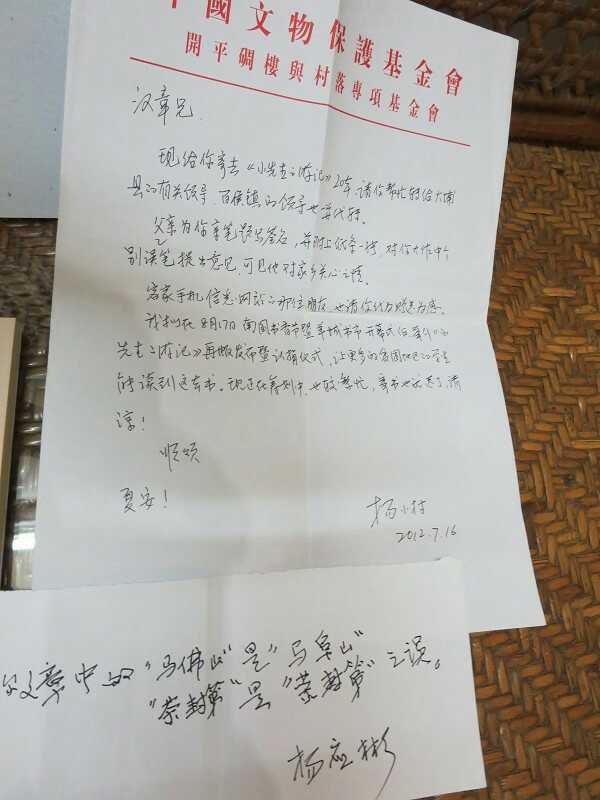 中國文物保護基金會
開平碉樓與村落專項基金會
汉章兄：
现给你寄去《小先生之游记》20本，请你帮忙转给大埔
县的有关领导，百侯镇的领导也请代转。
父亲为你亲笔题书签名，并附上信条一张，对你大作中个
别误笔提出意见，可见他对家乡关心之情。
客家手机信息网站的那位朋友，也请你代为赠送为感。
我拟在8月17日南国书香节暨羊城书市开幕式
先生之游记》再版发布暨认捐仪式，让更多的
能读到这本书。现正在筹划中，也较繁忙，寄书也迟了，请
谅！
顺颂
夏安！
杨小村
2012.7.16
文章中的"马佛山"是"马阜山"
"荣封第"是"荣封第"之误。
杨应彬